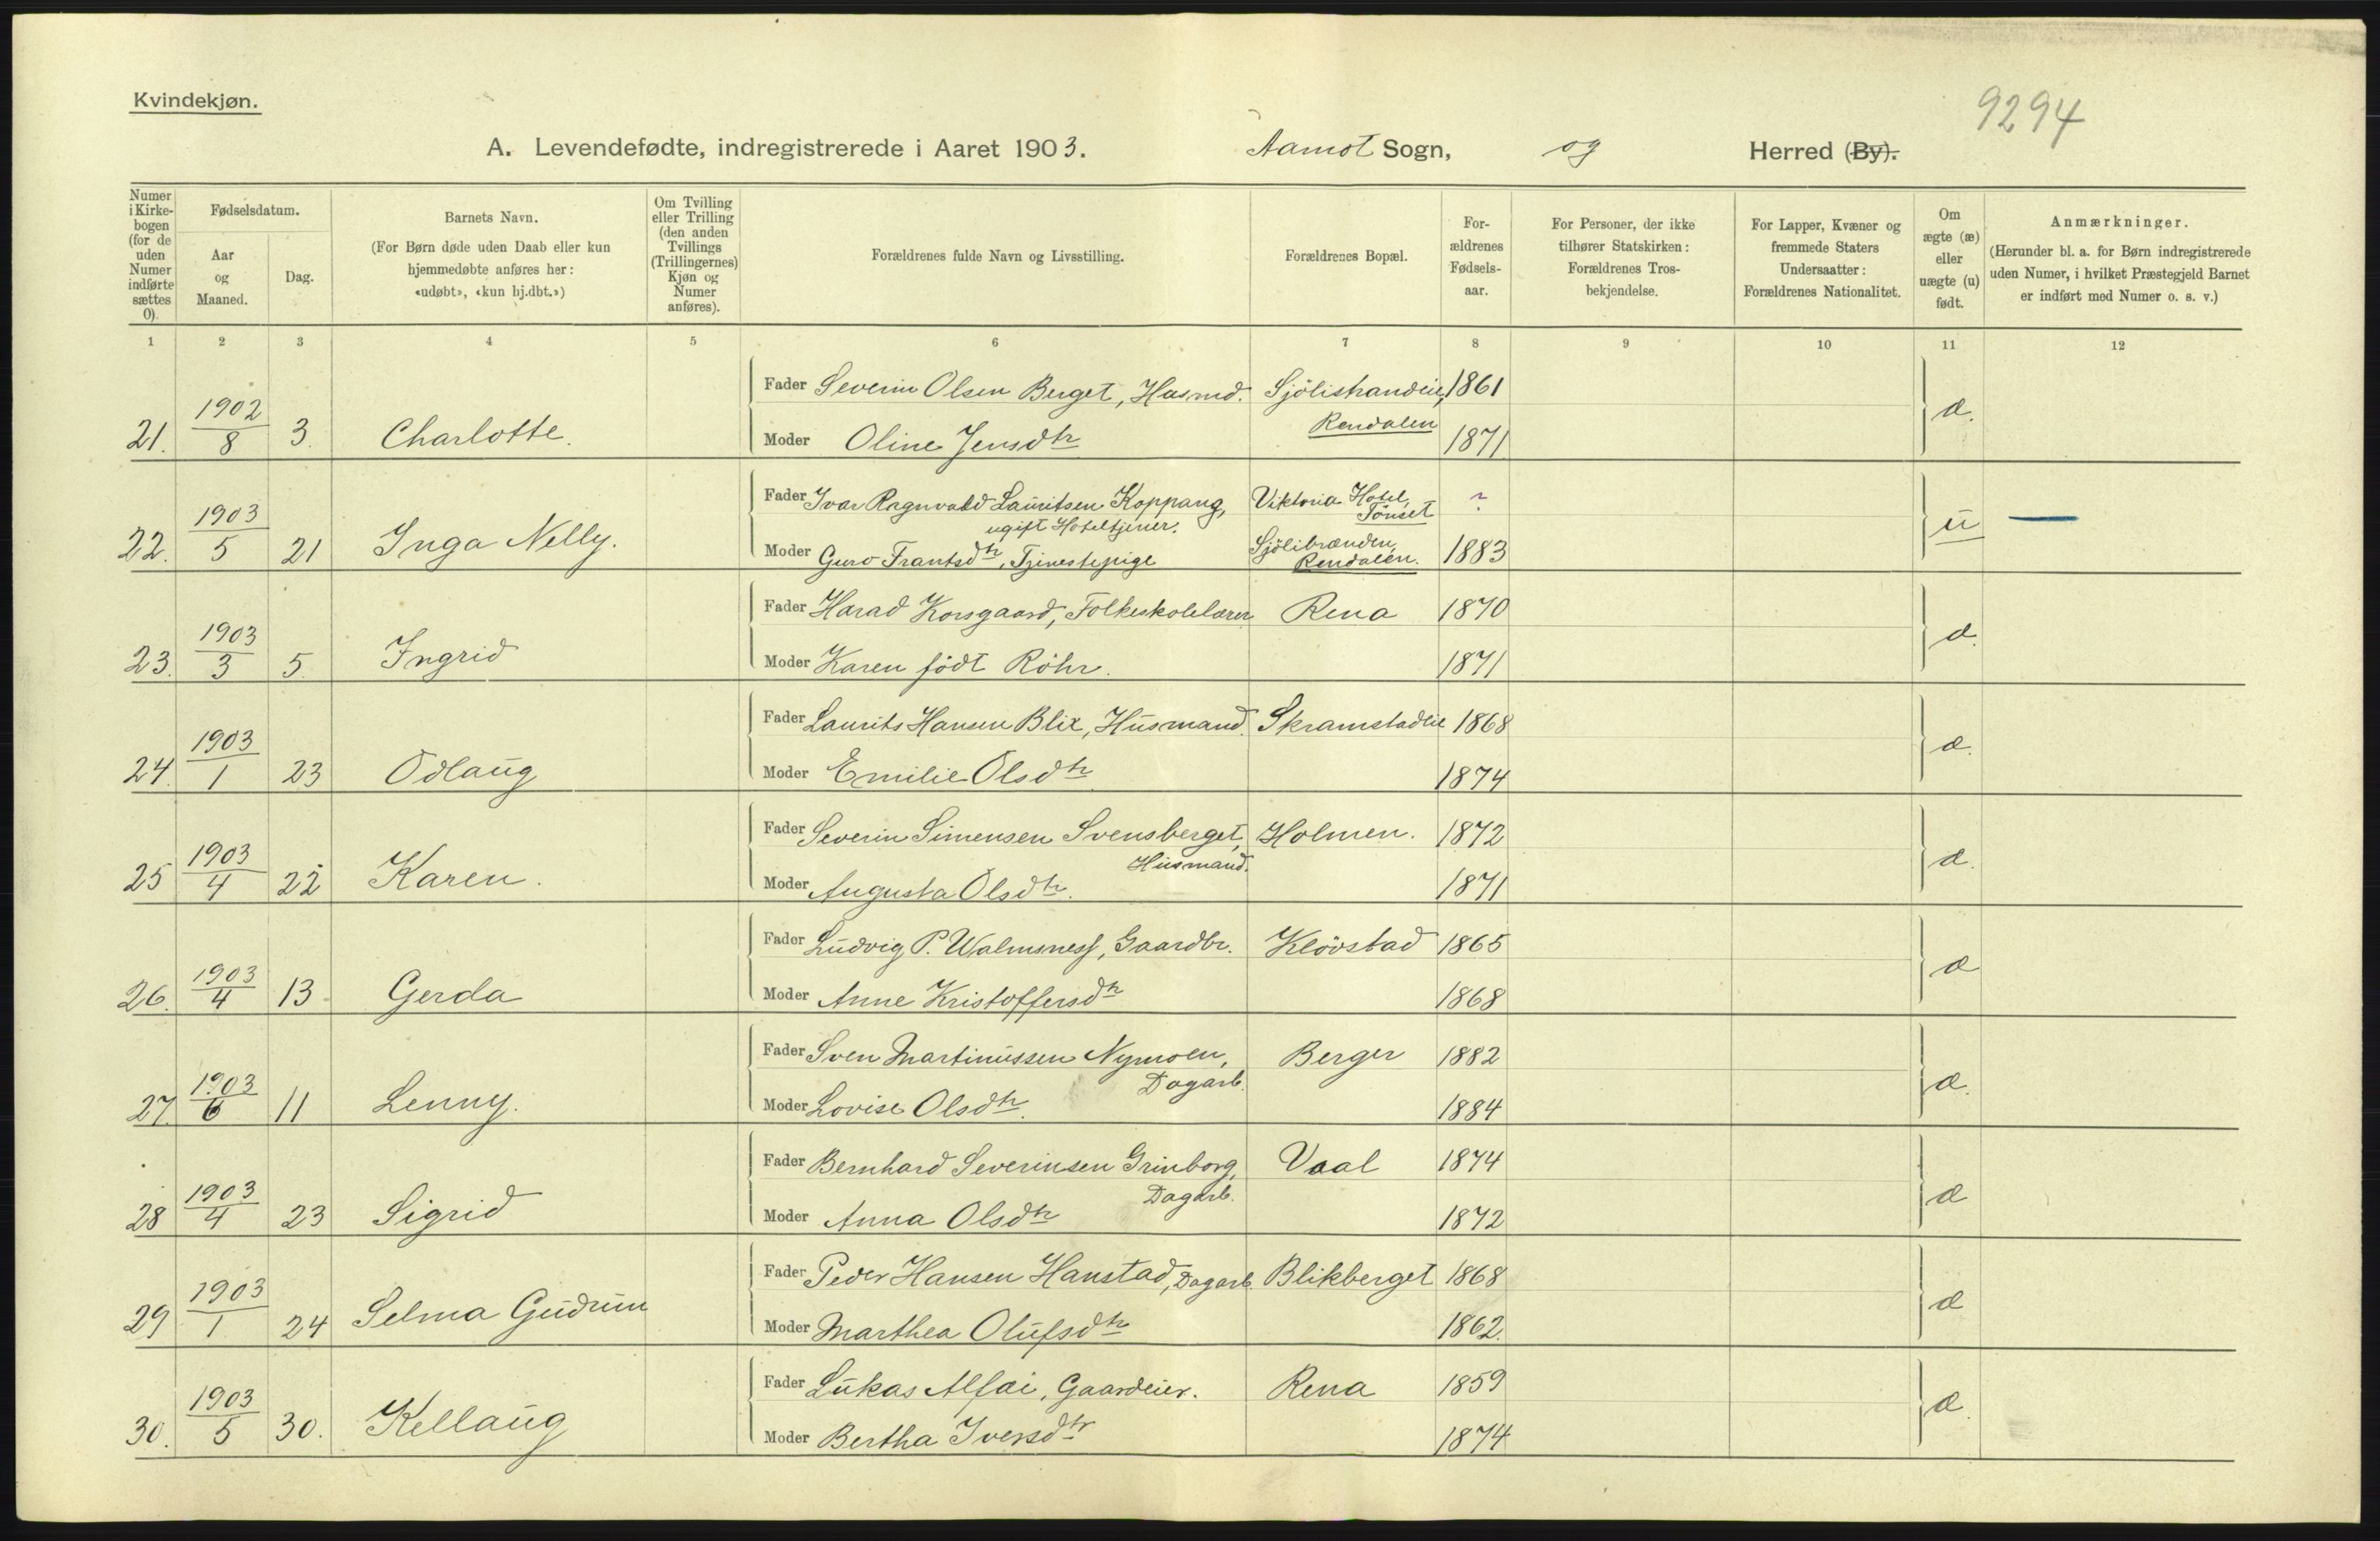 Kvindekjøn.
9294
A. Levendefødte, indregistrerede i Aaret 1903. Aamot Sogn, og Herred (By).
Numer i Kirke-bogen (for de uden Numer indførte sættes 0).
Fødselsdatum.
Aar og Maaned.
Dag.
Barnets Navn.
(For Børn døde uden Daab eller kun hjemmedøbte anføres her: «udøbt», «kun hj.dbt.»)
Om Tvilling eller Trilling (den anden Tvillings (Trillingernes) Kjøn og Numer anføres).
Forældrenes fulde Navn og Livsstilling.
Forældrenes Bopæl.
For-ældrenes Fødsels-aar.
For Personer, der ikke tilhører Statskirken: Forældrenes Tros-bekjendelse.
For Lapper, Kvæner og fremmede Staters Undersaatter: Forældrenes Nationalitet.
Om ægte (æ) eller uægte (u) født.
Anmærkninger.
(Herunder bl. a. for Børn indregistrerede uden Numer, i hvilket Præstegjeld Barnet er indført med Numer o. s. v.)
1 2 3 4 5 6 7 8 9 10 11 12
Fader Severin Olsen Berget, Husmd. Sjölistrandeie, 1861
21. 1902/8 3. Charlotte. æ.
Moder Oline Jensdtr Rendalen 1871
Fader Ivar Ragnvald Lauritsen Koppang, Viktoria Hotel, Tönset ?
ugift Hoteltjener.
22. 1903/5 21 Inga Nelly. u —
Moder Guro Frantsdtr, Tjenestepige Sjölibrænden, Rendalen. 1883
Fader Harad Korsgaard, Folkeskolelærer Rena 1870
23. 1903/3 5. Ingrid æ.
Moder Karen födt Röhr. 1871
Fader Laurits Hansen Blix, Husmand. Skramstadeie 1868
24. 1903/1 23 Odlaug æ.
Moder Emilie Olsdtr 1874
Fader Severin Simensen Svensberget, Holmen. 1872
Husmand.
25 1903/4 22 Karen. æ.
Moder Augusta Olsdtr. 1871
Fader Ludvig P. Walmsness, Gaardbr. Klövstad 1865
26. 1903/4 13 Gerda æ
Moder Anne Kristoffersdtr 1868
Fader Sven Martinussen Nymoen, Berger 1882
Dagarb.
27. 1903/6 11 Lenny. æ.
Moder Lovise Olsdtr. 1884
Fader Bernhard Severinsen Grinborg, Vaal 1874
Dagarb.
28 1903/4 23 Sigrid æ
Moder Anna Olsdtr 1872
Fader Peder Hansen Hanstad, Dagarb. Blikberget 1868
29 1903/1 24 Selma Gudrun æ
Moder Marthea Olufsdtr 1862.
Fader Lukas Alfai, Gaardeier. Rena 1859
30. 1903/5 30. Kellaug æ.
Moder Bertha Iversdtr 1874